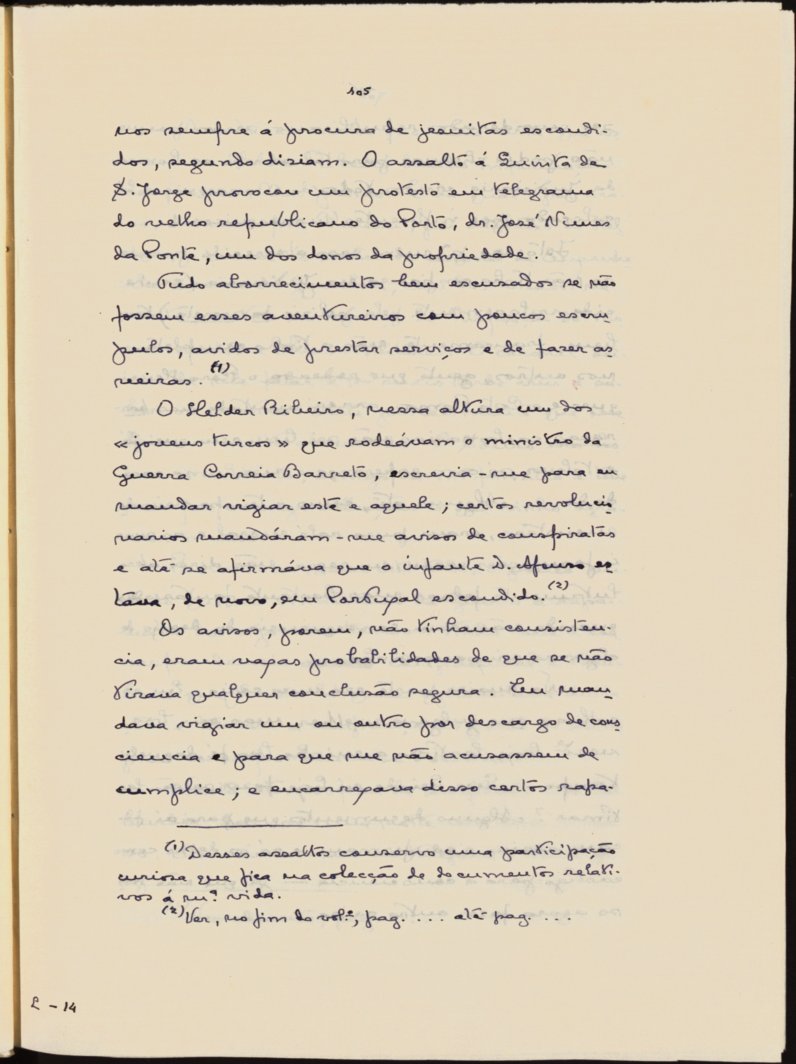 105
nos sempre á procura de jesuitas escondi-
dos, segundo diziam. O assalto á Quinta de
S. Jorge provocou um protesto em telegrama
do velho republicano do Porto, dr. José Nunes
da Ponte, um dos donos da propriedade.
Tudo aborrecimentos bem escusados se não
fossem esses aventureiros com poucos escru-
pulos, avidos de prestar serviços e de fazer as-
neiras. (1)
O Helder Ribeiro, nessa altura um dos
«jovens turcos» que rodeávam o ministro da
Guerra Correia Barreto, escrevia-me para eu
mandar vigiar este e aquele; certos revolucio-
narios mandáram-me avisos de conspiratas
e até se afirmáva que o infante D. Afonso es-
táva, de novo, em Portugal escondido. (2)
Os avisos, porem, não tinham consisten-
cia, eram vagas probabilidades de que se não
tirava qualquer conclusão segura. Eu man-
dava vigiar um ou outro por descargo de cons-
ciencia e para que me não acusassem de
cumplice; e encarregava disso certos rapa-
(1) Desses assaltos conservo uma participação
curiosa que fica na colecção de documentos relati-
vos á m.ª vida.
(2) Ver, no fim do vol.e, pag. ... até pag. ...
L - 14